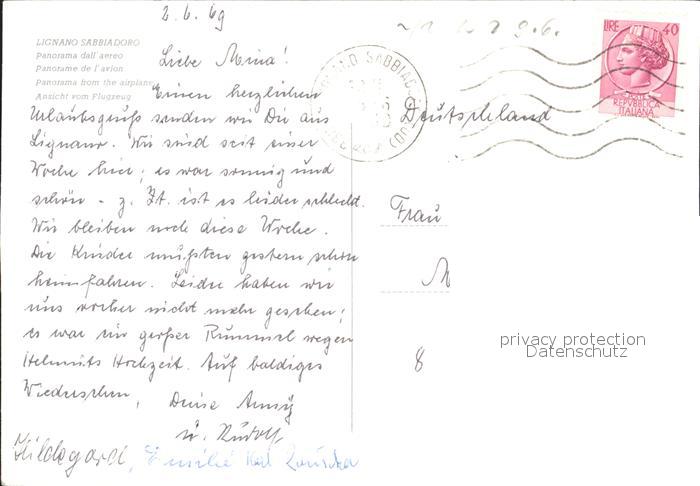 2.6.69
LIGNANO SABBIADORO
Panorama dall'aereo
Panorame de l'avion
Panorama from the airplane
Ansicht vom Flugzeug
Liebe Mina!
Einen herzlichen
Urlaubsgruß senden wir Dir aus
Lignano. Wir sind seit einer
Woche hier; es war sonnig und
schön - z. Zt. ist es leider schlecht.
Wir bleiben noch diese Woche.
Die Kinder mußten gestern schon
heimfahren. Leider haben wir
uns vorher nicht mehr gesehen;
es war ein großer Rummel wegen
Helmuts Hochzeit. Auf baldiges
Wiedersehen, Deine Anny
u. Rudolf
Hildegard, Emilie Karl
LIRE 40
REPVBBLICA
ITALIANA
Deutschland
Frau
M
8
privacy protection
Datenschutz